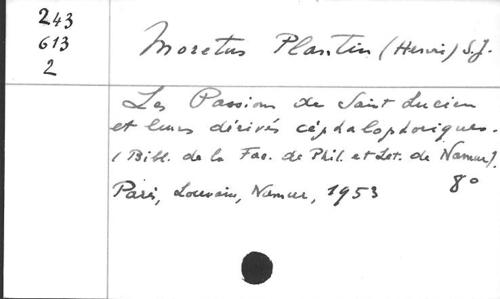 243
613
2
Moretus Plantin (Henri) S.J.
Les Passions de Saint Lucien
et leurs dérivés céphalophoriques.
(Bibl. de la Fac. de Phil. et Let. de Namur).
Paris, Louvain, Namur, 1953 8°